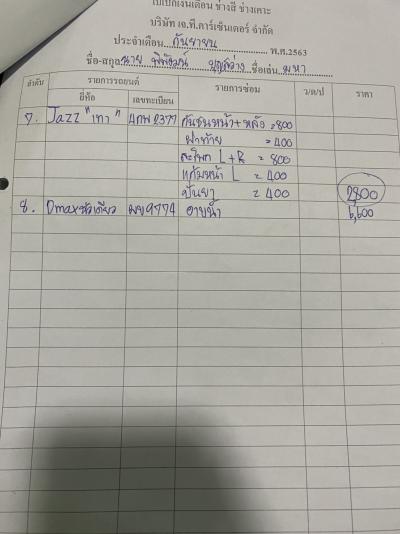 ใบเบิกเงินเดือน ช่างสี ช่างเคาะ
บริษัท เจ.ที.คาร์เซ็นเตอร์ จำกัด
ประจำเดือน กันยายน พ.ศ.2563
ชื่อ-สกุล นาย ชื่อเล่น มหา
ลำดับ รายการรถยนต์ รายการซ่อม ว/ด/ป ราคา
ยี่ห้อ เลขทะเบียน
7. Jazz "เทา" 4กพ 2377 กันชนหน้า+หลัง =800
ฝาท้าย =400
สะโพก L+R = 800
แก้มหน้า L = 400
ปังยา = 400 2,800
8. Dmax หัวเดียว 9774 6,600